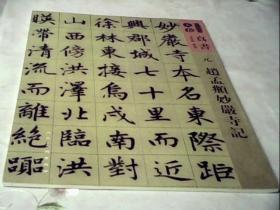 真書
元 趙孟頫妙嚴寺記
妙嚴寺本名東際距
興郡城七十里而近
徐林東接烏戍南對
山西傍洪澤北臨洪
映帶清流而離絕囂